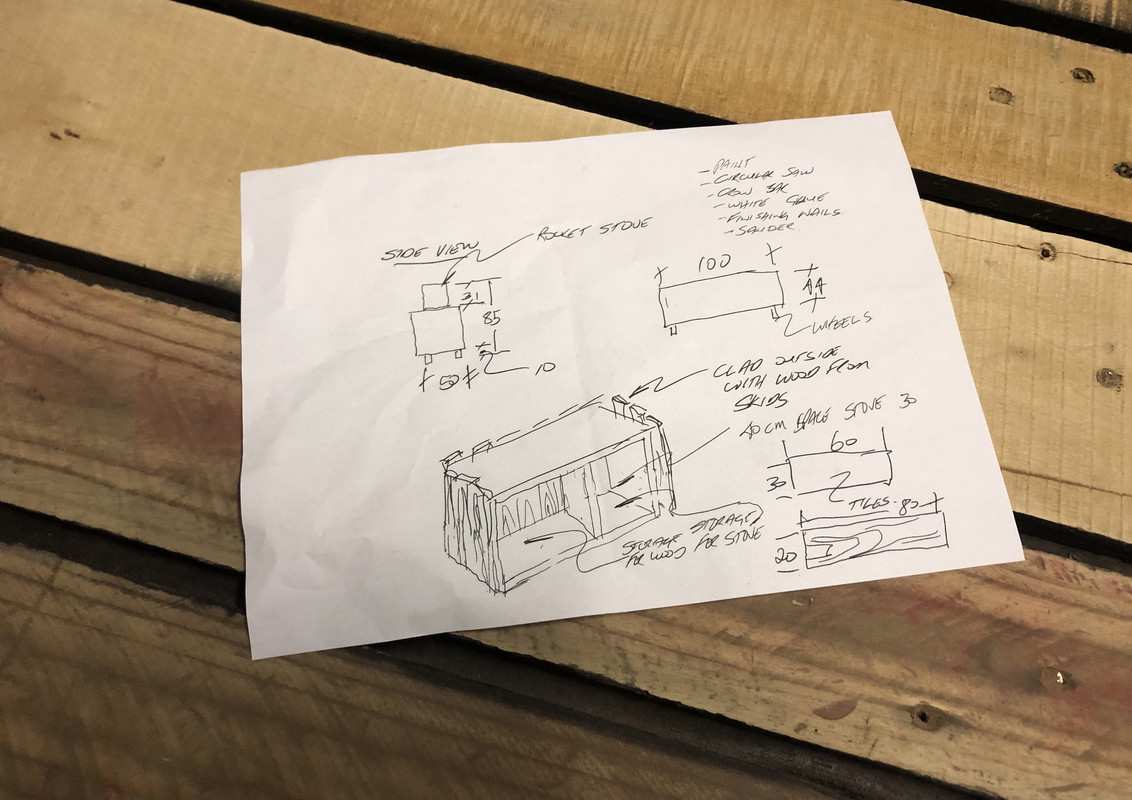 - PAINT
- CIRCULAR SAW
- CROW BAR
- WHITE GLUE
- FINISHING NAILS
- SANDER
SIDE VIEW
ROCKET STOVE
31
85
50
10
100
44
WHEELS
CLAD OUTSIDE
WITH WOOD FROM
SKIDS
40 CM SPACE STOVE 30
60
30
TILES
80
20
STORAGE
STORAGE
FOR WOOD FOR STOVE